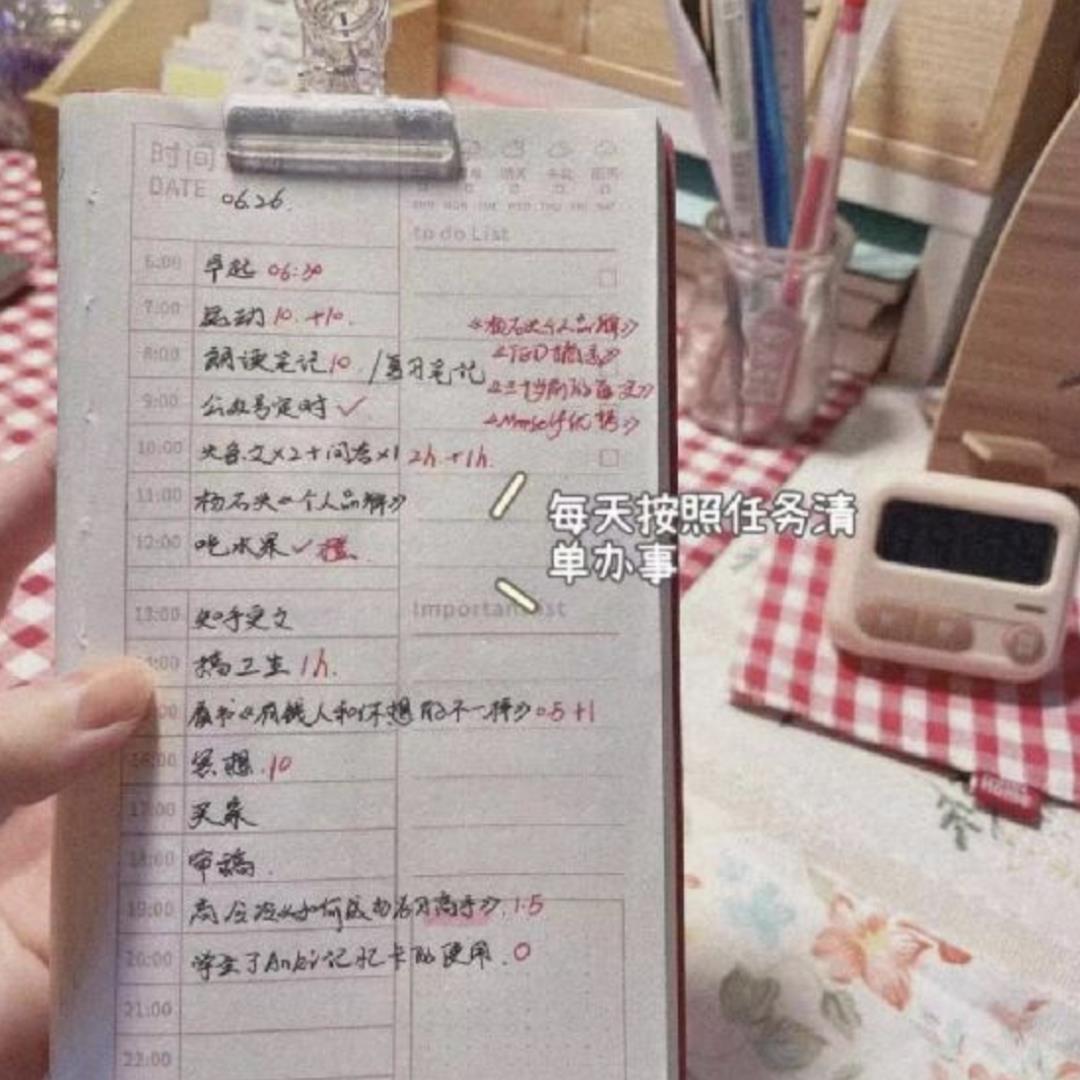 时间
DATE 06.26.
SUN MON TUE WED THU FRI SAT
to do List
6:00 早起 06:30
7:00 运动 10. +10.
8:00 朗读笔记 10. / 复习笔记
《杨石头个人品牌》
《TED演讲》
9:00 公众号定时 ✓
10:00 ×2+问答×1 2h. +1h.
11:00 杨石头《个人品牌》
12:00 吃水果 ✓
每天按照任务清
单办事
Important List
13:00 知乎更文
14:00 搞卫生 1h.
看书《有钱人和你想的不一样》0.5 +1
16:00 冥想. 10
17:00 买菜
18:00 审稿.
19:00 《如何成为学习高手》. 1.5
20:00 学生了Anki记忆卡的使用. 0
21:00
22:00
HOME